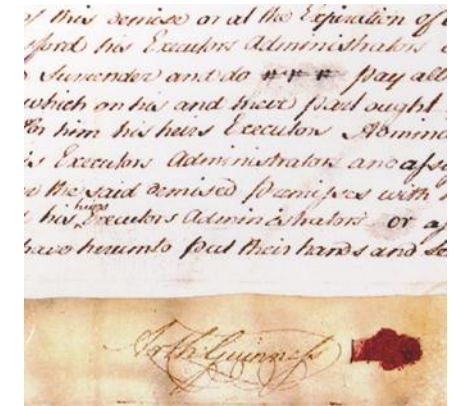 of this demise or at the Expiration of
his Executors Administrators
Surrender and do pay all
which on his and their part ought
for him his heirs Executors
Executors Administrators and
the said demised premisses with
his heirs Executors Administrators or
have hereunto put their hands and
Guinness